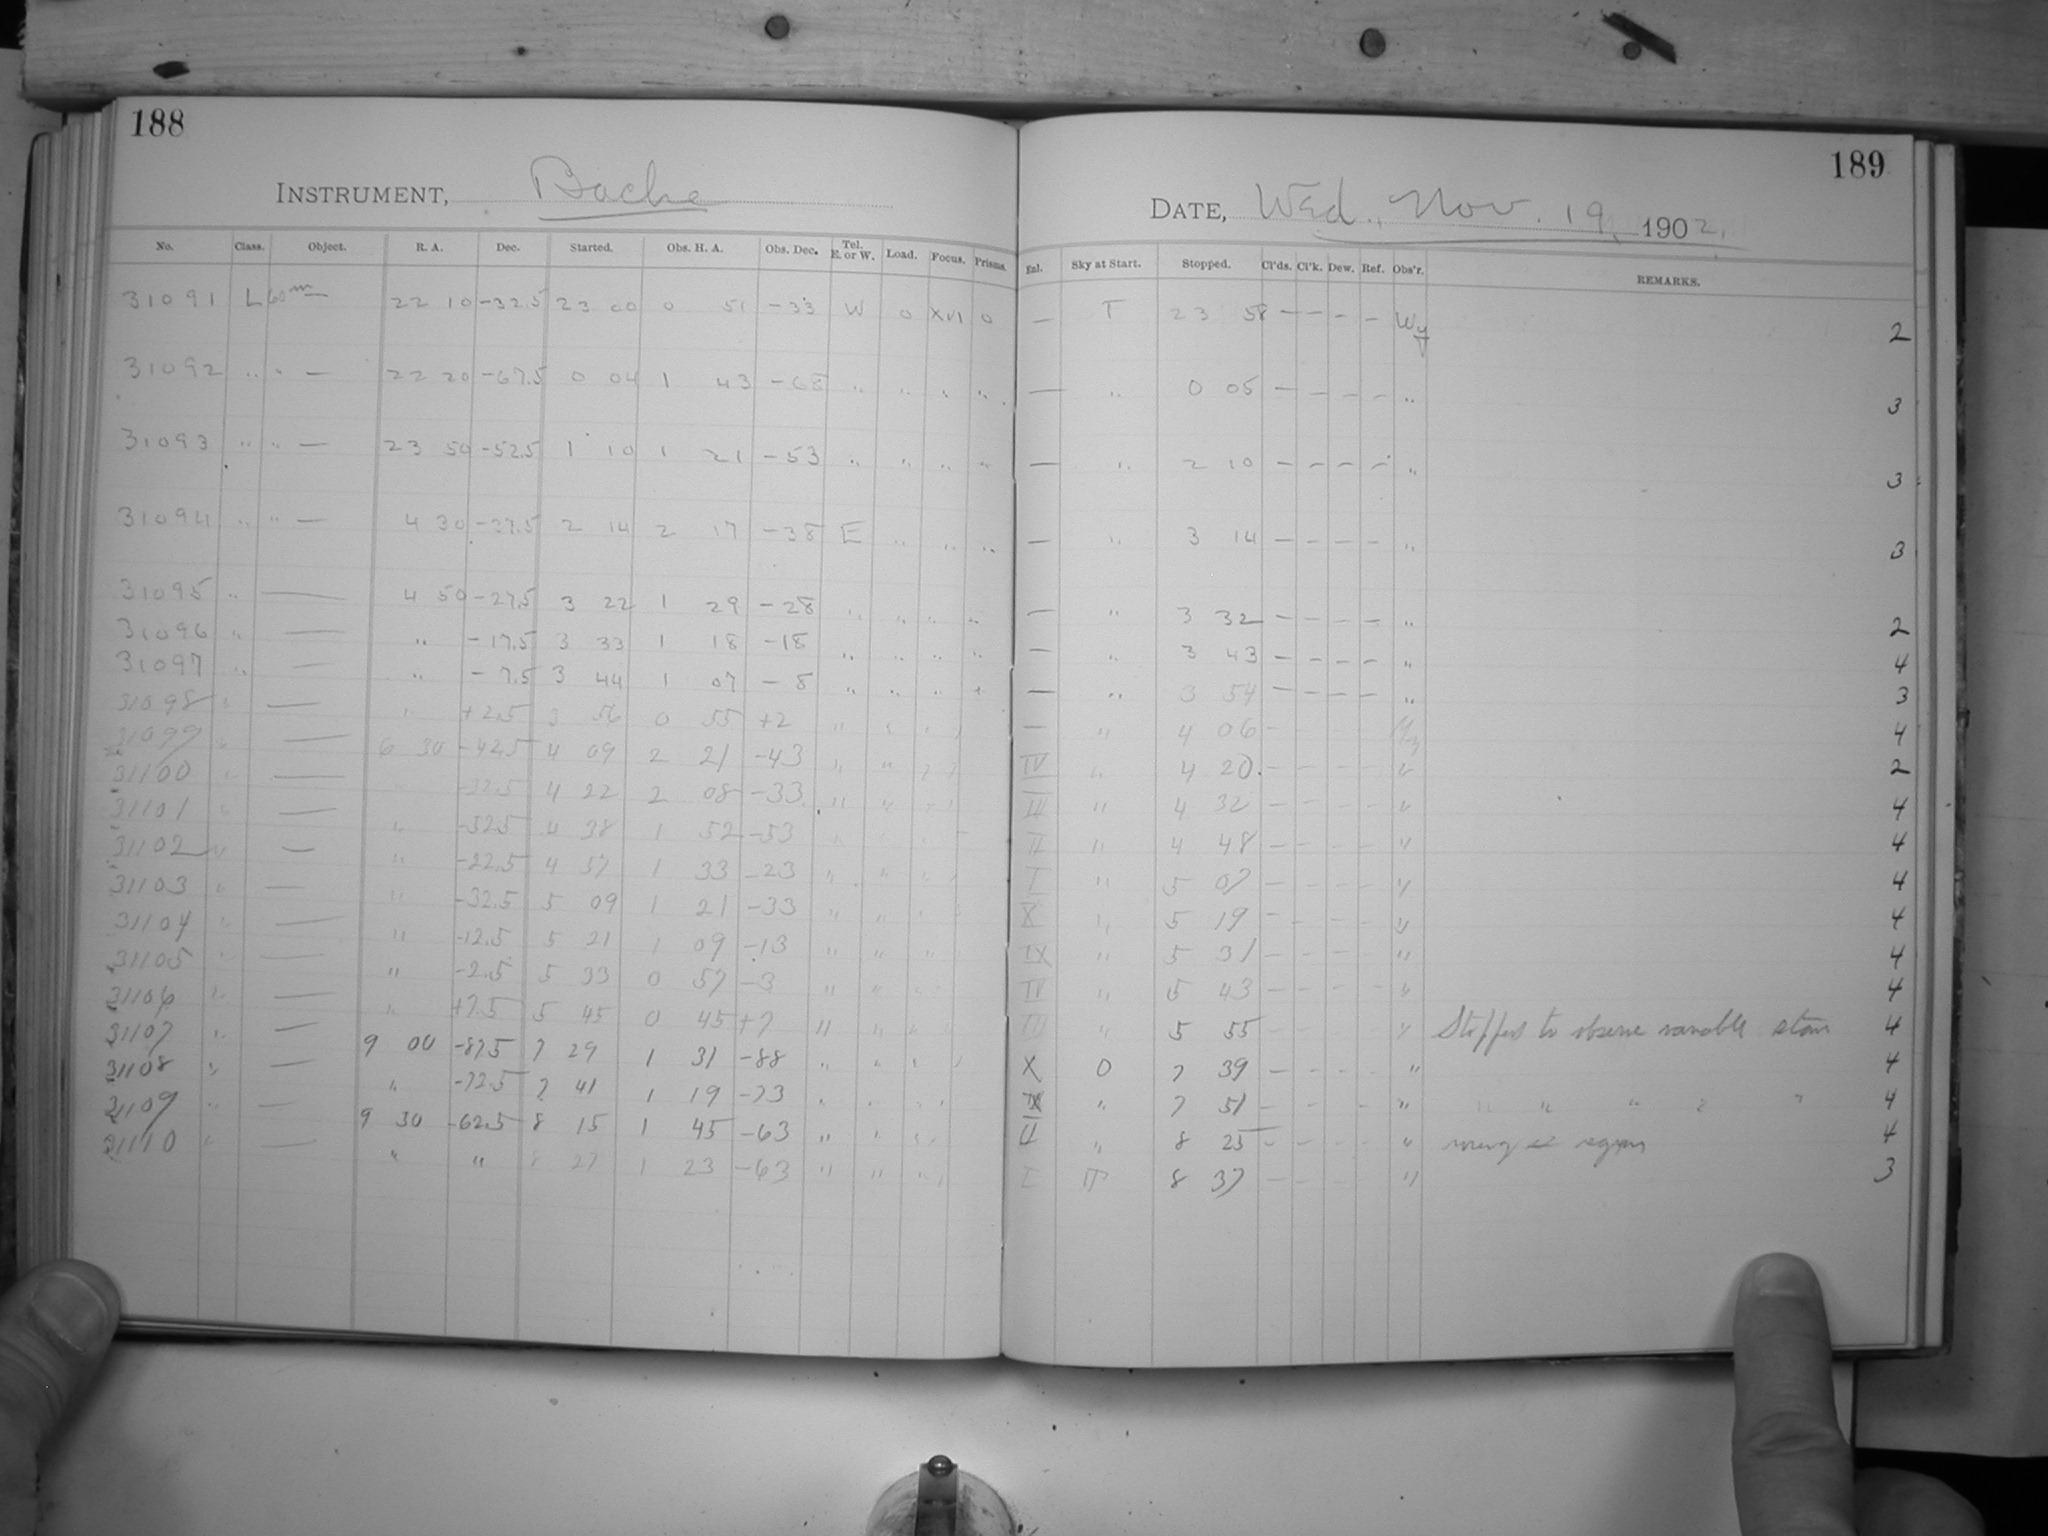 188
INSTRUMENT, Bache
No. Class. Object. R. A. Dec. Started. Obs. H. A. Obs. Dec. Tel. E. or W. Load. Focus. Prisms.
31091 L 60m — 22 10 -32.5 23 00 0 51 -33 W 0 XVI 0
31092 " " — 22 20 -67.5 0 04 1 43 -68 " " " "
31093 " " — 23 50 -52.5 1 10 1 21 -53 " " " "
31094 " " — 4 30 -37.5 2 14 2 17 -38 E " " "
31095 " — 4 50 -27.5 3 22 1 29 -28 " " " "
31096 " — " -17.5 3 33 1 18 -18 " " " "
31097 " — " -7.5 3 44 1 07 -8 " " " "
31098 " — " +2.5 3 56 0 55 +2 " " " "
31099 " — 6 30 -42.5 4 09 2 21 -43 " " " "
31100 " — " -32.5 4 22 2 08 -33 " " " "
31101 " — " -52.5 4 38 1 52 -53 " " "
31102 " — " -22.5 4 57 1 33 -23 " " " "
31103 " — " -32.5 5 09 1 21 -33 " " " "
31104 " — " -12.5 5 21 1 09 -13 " " " "
31105 " — " -2.5 5 33 0 57 -3 " " " "
31106 " — " +7.5 5 45 0 45 +7 " " " "
31107 " — 9 00 -87.5 7 29 1 31 -88 " " " "
31108 " — " -72.5 7 41 1 19 -73 " " " "
31109 " — 9 30 -62.5 8 15 1 45 -63 " " " "
31110 " — " " 8 27 1 23 -63 " " " "
189
DATE, Wed., Nov. 19, 1902.
Enl. Sky at Start. Stopped. Cl'ds. Cl'k. Dew. Ref. Obs'r. REMARKS.
— T 23 58 — — — — Wy 2
— " 0 05 — — — — " 3
— " 2 10 — — — — " 3
— " 3 14 — — — — " 3
— " 3 32 — — — — " 2
— " 3 43 — — — — " 4
— " 3 54 — — — — " 3
— " 4 06 — — — — 4
IV " 4 20 — — — — " 2
III " 4 32 — — — — " 4
II " 4 48 — — — — " 4
I " 5 07 — — — — " 4
X " 5 19 — — — — " 4
IX " 5 31 — — — — " 4
IV " 5 43 — — — — " 4
" 5 55 — — — — " Stopped to observe variable stars 4
X 0 7 39 — — — — " 4
IX " 7 51 — — — — " " " " " " 4
II " 8 25 — — — — " wrong region 4
I T 8 37 — — — — " 3